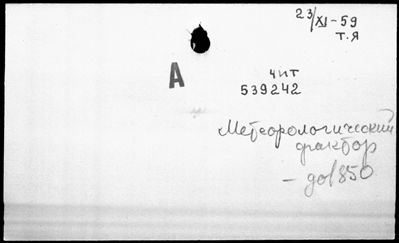 23/XI-59
Т.Я
А
чит
539242
Метеорологический
фактор
- до 1850